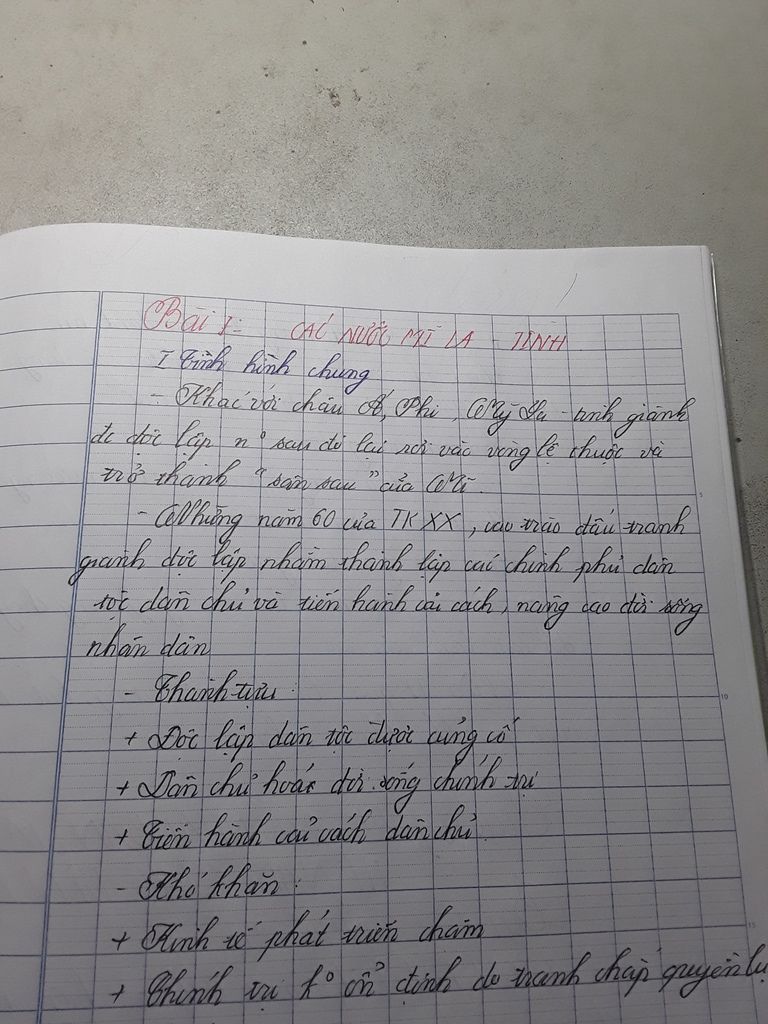 Bài 7: CÁC NƯỚC MĨ LA - TINH
I Tình hình chung
- Khác với châu Á, Phi, Mỹ La - tinh giành
đc độc lập nº sau đó lại rơi vào vòng lệ thuộc và
trở thành "sân sau" của Mĩ.
- Những năm 60 của TK XX, cao trào đấu tranh
giành độc lập nhằm thành lập các chính phủ dân
tộc dân chủ và tiến hành cải cách, nâng cao đời sống
nhân dân
- Thành tựu:
+ Độc lập dân tộc được củng cố
+ Dân chủ hoá đời sống chính trị
+ Tiến hành cải cách dân chủ
- Khó khăn:
+ Kinh tế phát triển chậm
+ Chính trị kº ổn định do tranh chấp quyền lự